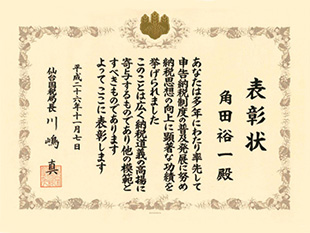 表彰状
角田裕一殿
あなたは多年にわたり率先して
申告納税制度の普及発展に努め
納税思想の向上に顕著な功績を
挙げられました
このことは広く納税道義の高揚に
寄与するものであり他の模範と
すべきものであります
よってここに表彰します
平成二十六年十一月七日
仙台国税局長 川嶋真